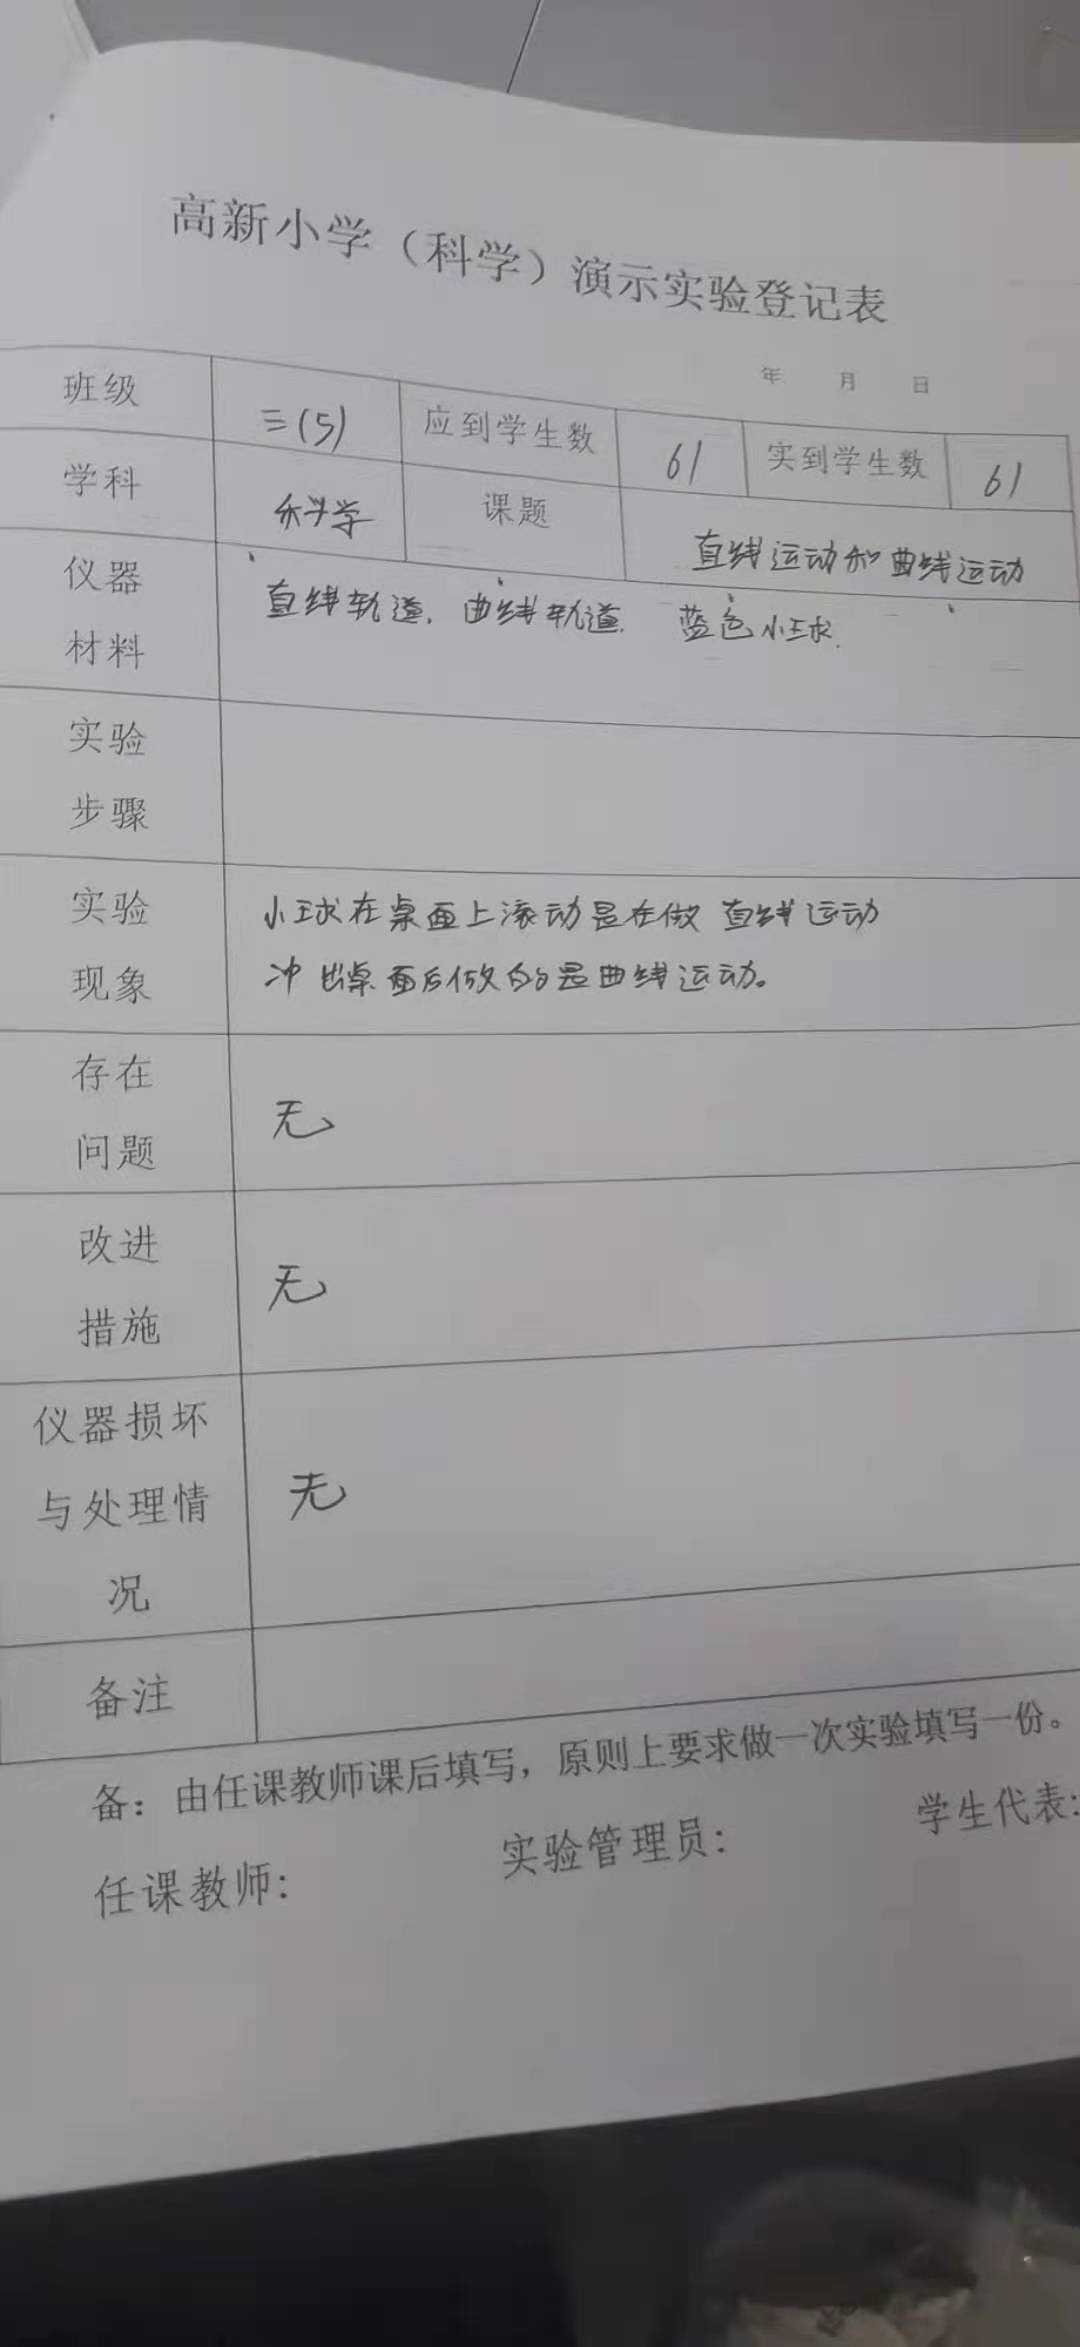 高新小学（科学）演示实验登记表
年 月 日
班级 三(5) 应到学生数 61 实到学生数 61
学科 科学 课题 直线运动和曲线运动
仪器
材料
直线轨道. 曲线轨道. 蓝色小球.
实验
步骤
实验
现象
小球在桌面上滚动是在做 直线运动
冲出桌面后做的是曲线运动。
存在
问题
无
改进
措施
无
仪器损坏
与处理情
况
无
备注
备：由任课教师课后填写，原则上要求做一次实验填写一份。
任课教师: 实验管理员: 学生代表: